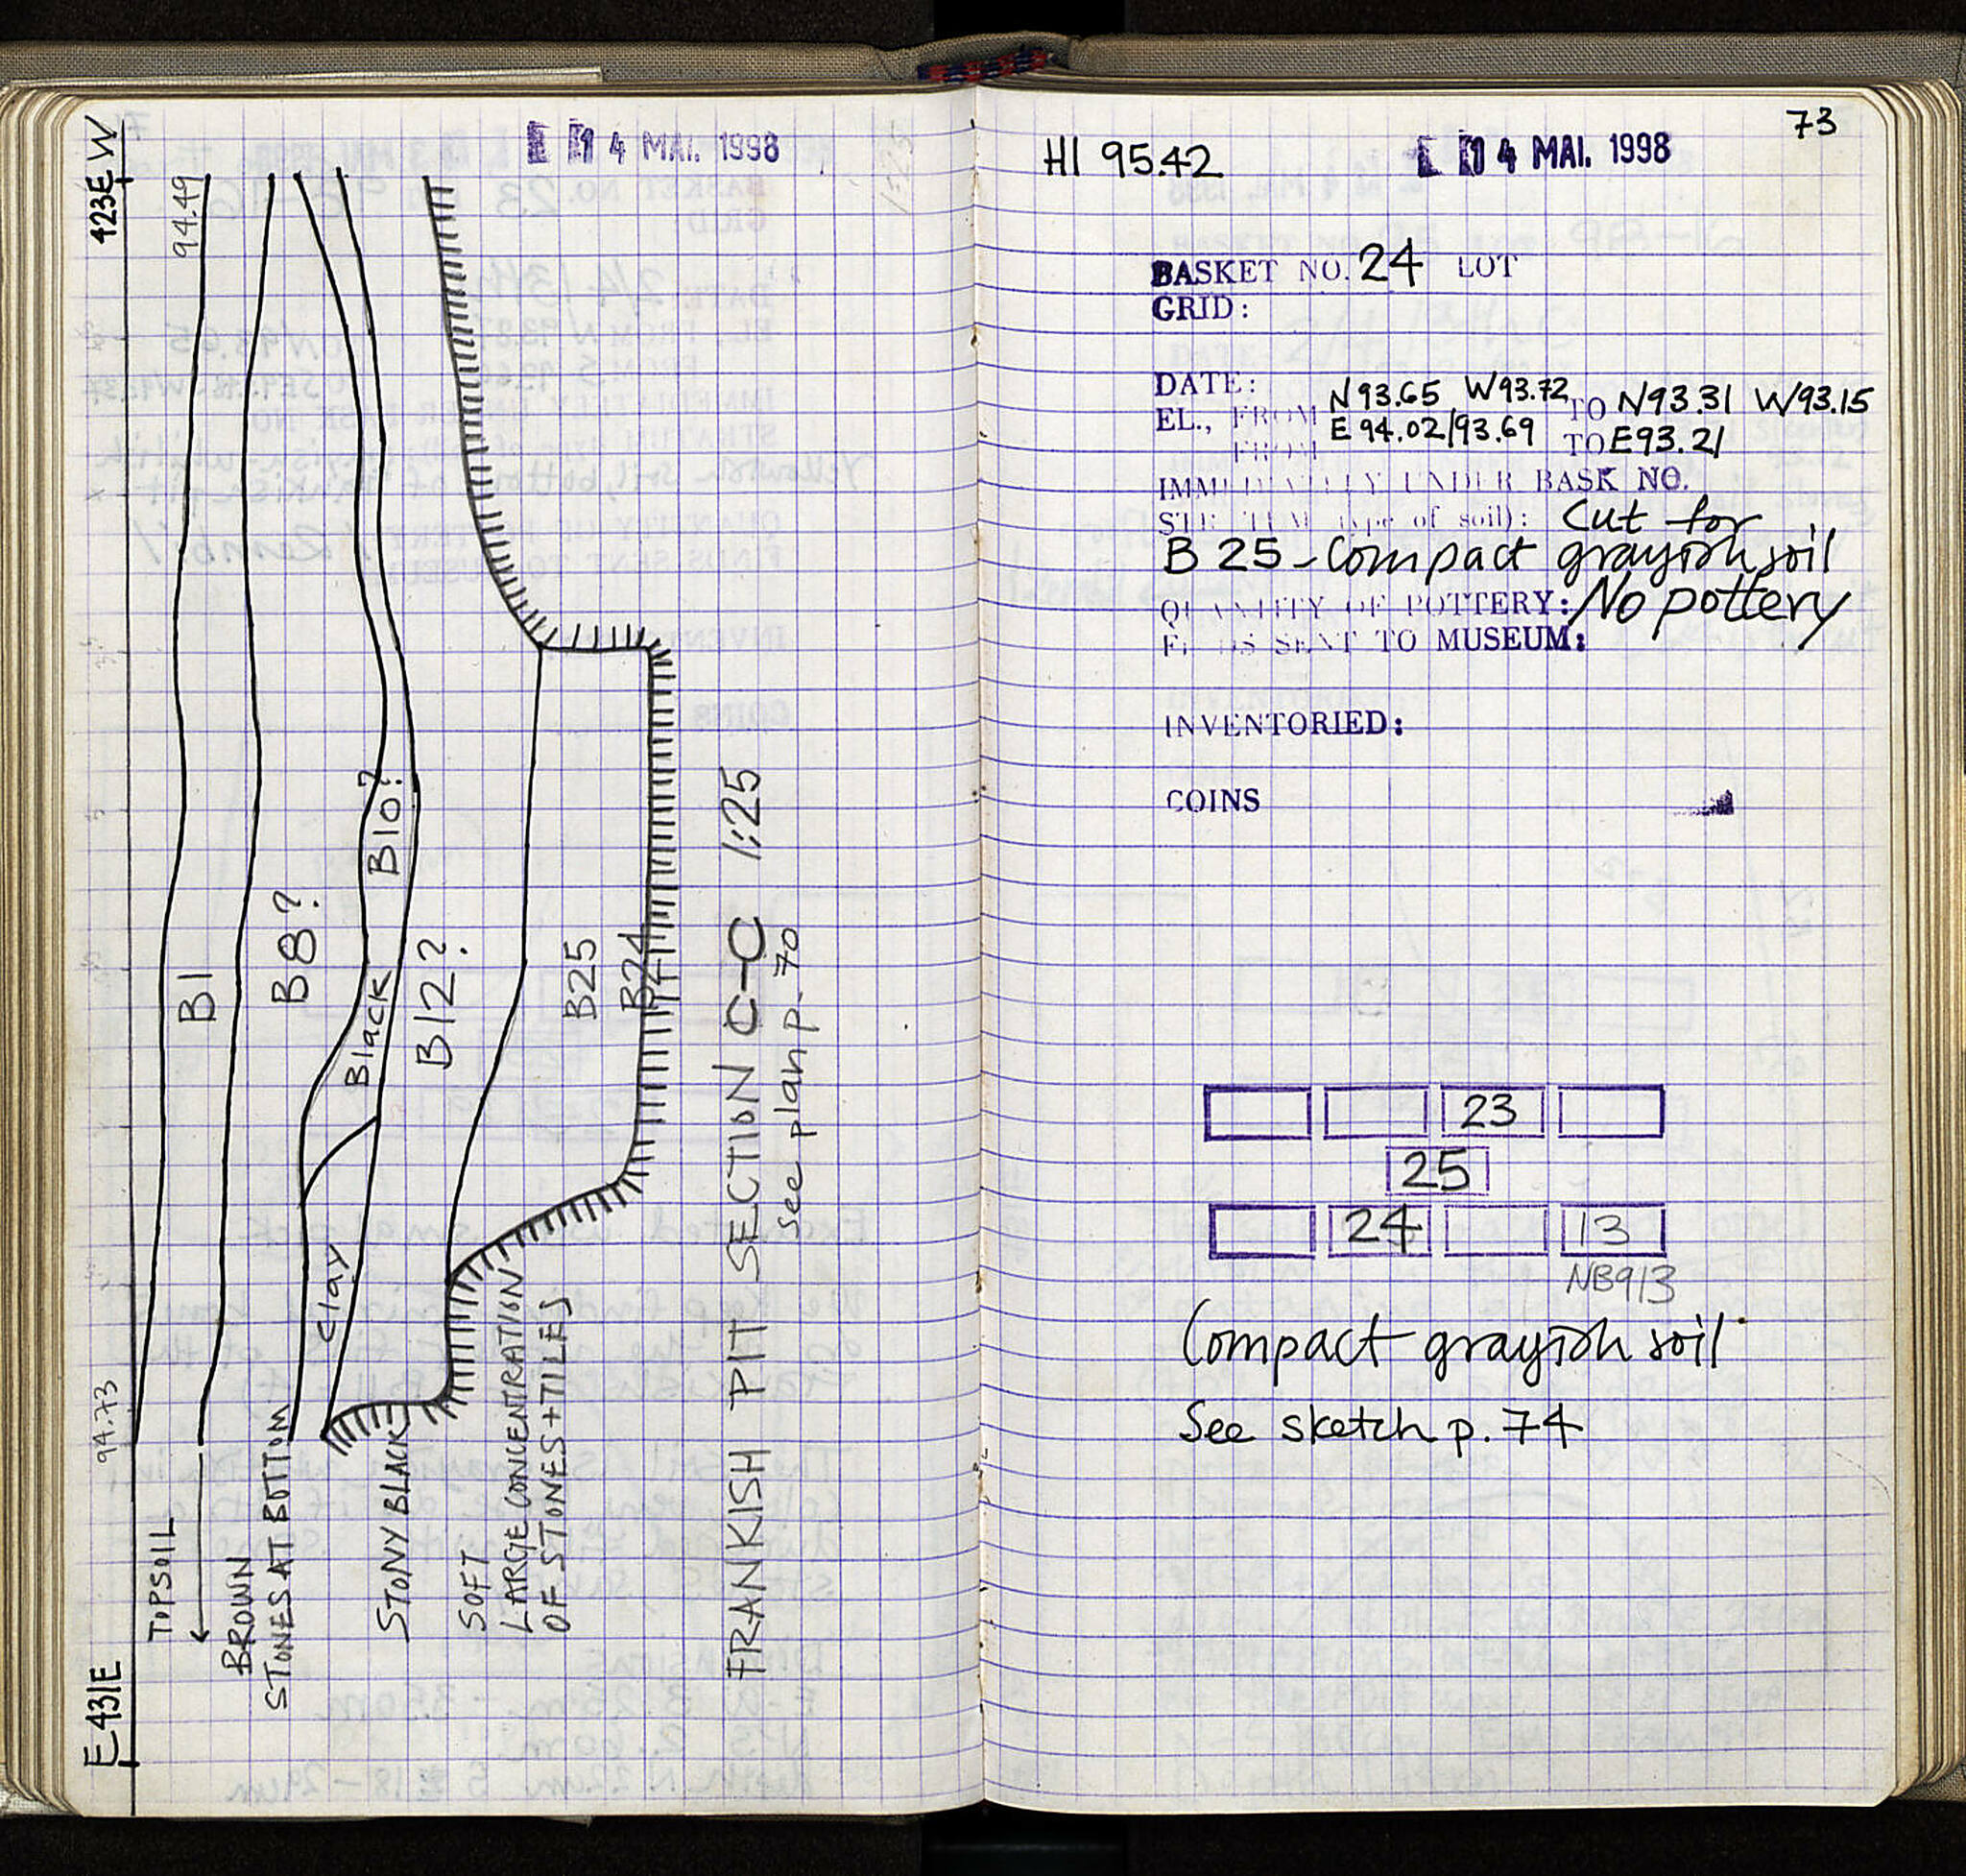 14 MAI. 1998
423E W
94.49
B1
B8?
B10?
Black
B12?
B25
B24
Clay
94.73
E 431E
TOPSOIL
BROWN
STONES AT BOTTOM
STONY BLACK
SOFT
LARGE CONCENTRATION
OF STONES + TILES
FRANKISH PIT SECTION C-C 1:25
See plan p. 70
73
HI 95.42
14 MAI. 1998
BASKET NO. 24 LOT
GRID:
DATE:
EL., FROM N 93.65 W 93.72 TO N 93.31 W 93.15
FROM E 94.02/93.69 TO E 93.21
IMMEDIATELY UNDER BASK NO.
STRATUM (type of soil): Cut for
B 25 - Compact grayish soil
QUANTITY OF POTTERY: No pottery
FINDS SENT TO MUSEUM:
INVENTORIED:
COINS
23
25
24 13
NB913
Compact grayish soil
See sketch p. 74